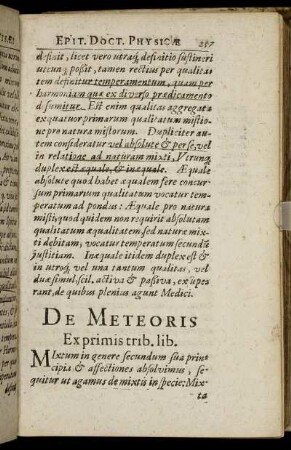 EPIT. DOCT. PHYSICÆ 217
definit, licet vero utraq; definitio sustineri
utcunq; possit, tamen rectius per qualitatem
definitur temperamentum, quam per
harmoniam quæ ex diverso prædicamento
desumitur. Est enim qualitas aggregata
ex quatuor primarum qualitatum mistione
pro natura mistorum. Dupliciter autem
consideratur vel absolute & per se, vel
in relatione ad naturam mixti. Utrunq;
duplex est æquale, & inæquale. Æquale
absolute quod habet æqualem fere concursum
primarum qualitatum vocatur temperatum
ad pondus: Æquale pro natura
misti, quod quidem non requirit absolutam
qualitatum æqualitatem, sed naturæ mixti
debitam, vocatur temperatum secundũ
justitiam. Inæquale itidem duplex est &
in utroq; vel una tantum qualitas, vel
duæ simul, scil. activa & passiva, exuperant,
de quibus plenius agunt Medici.
DE METEORIS
Ex primis trib. lib.
MIxtum in genere secundum sua principia
& affectiones absolvimus, sequitur
ut agamus de mixtis in specie: Mix-
ta